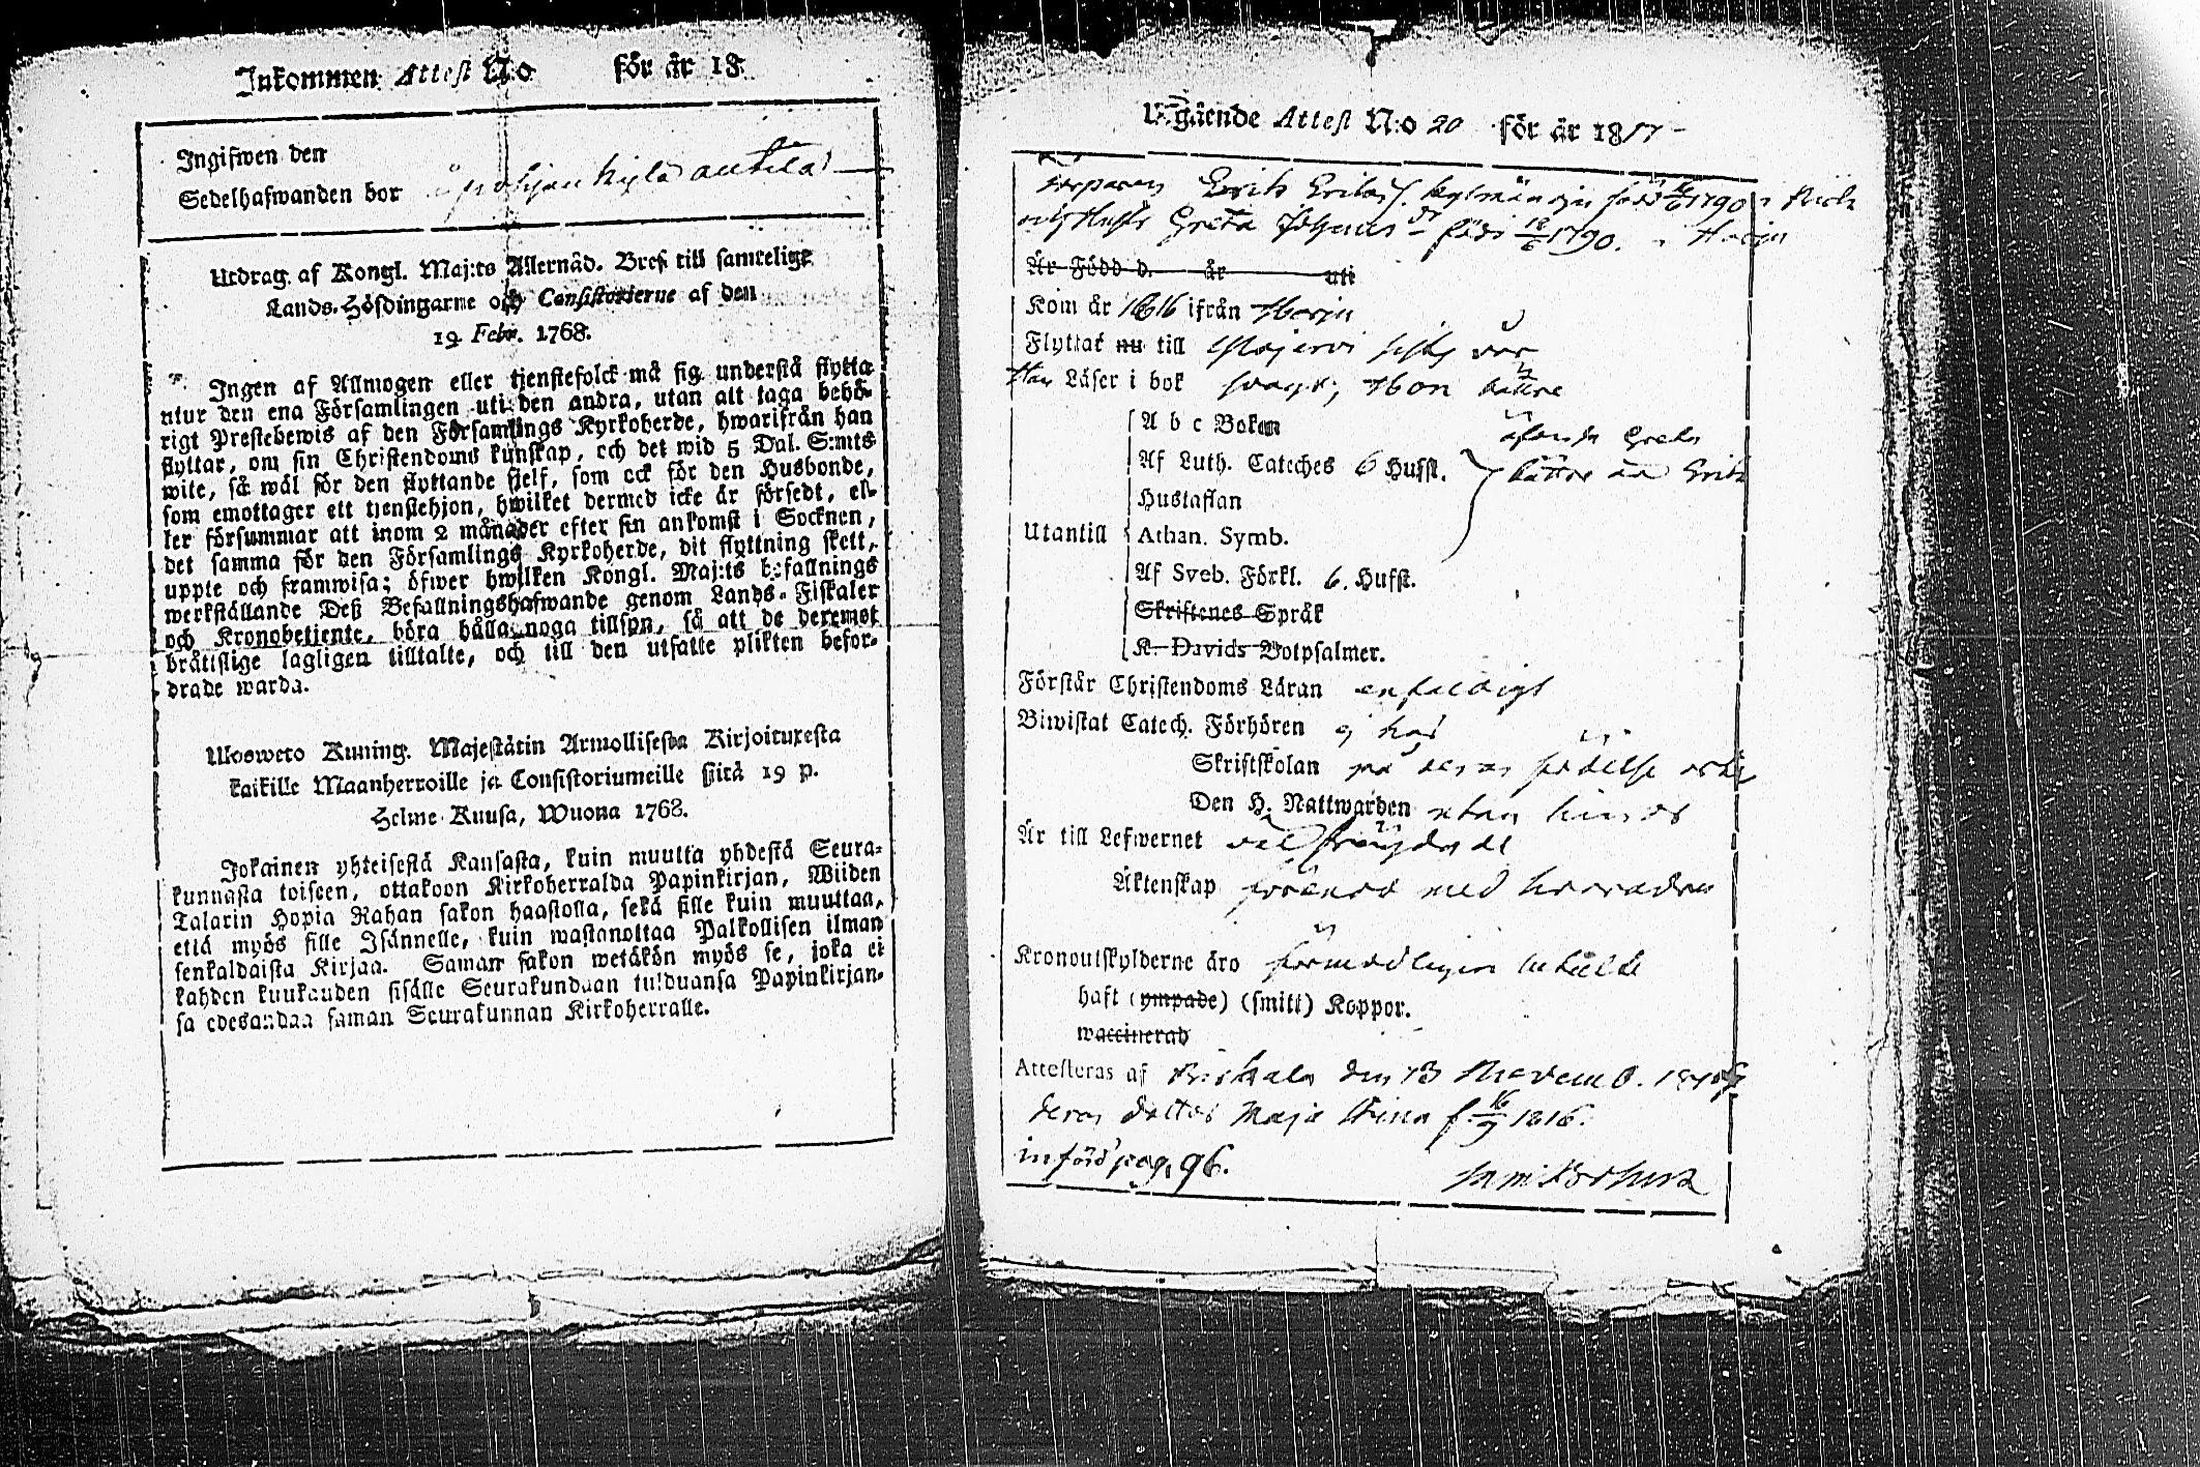 Inkommen Attest N:o för år 18
Ingifwen den
Sedelhafwanden bor Pohjankylä anttila
Utdrag af Kongl. Maj:ts Allernåd. Bref till samtelige
Lands-Höfdingarne och Consistorierne af den
19 Febr. 1768.
Ingen af Allmogen eller tjenstefolck må sig understå flytta
utur den ena Församlingen uti den andra, utan att taga behö-
rigt Prestebewis af den Församlings Kyrkoherde, hwarifrån han
flyttar, om sin Christendoms kunskap, och det wid 5 Dal. S:mts
wite, så wäl för den flyttande sjelf, som ock för den Husbonde,
som emottager ett tjenstehjon, hwilket dermed icke är försedt, el-
ler försummar att inom 2 månader efter sin ankomst i Socknen,
det samma för den Församlings Kyrkoherde, dit flyttning skett,
uppte och framwisa; öfwer hwilken Kongl. Maj:ts befallnings
werkställande Deß Befallningshafwande genom Lands-Fiskaler
och Kronobetjente, böra hålla noga tillsyn, så att de deremot
bråttslige lagligen tilltalte, och till den utsatte plikten befor-
drade warda.
Ulosweto Kuning. Majestätin Armollisesta Kirjoituxesta
kaikille Maanherroille ja Consistoriumeille siitä 19 p.
Helme Kuusa, Wuona 1768.
Jokainen yhteisestä Kansasta, kuin muutta yhdestä Seura-
kunnasta toiseen, ottakoon Kirkoherralda Papinkirjan, Wiiden
Talarin Hopia Rahan sakon haastolla, sekä sille kuin muuttaa,
että myös sille Isännelle, kuin wastanottaa Palkollisen ilman
senkaldaista Kirjaa. Saman sakon wetäkön myös se, joka ei
kahden kuukauden sisälle Seurakundaan tulduansa Papinkirjan-
sa edesandaa saman Seurakunnan Kirkoherralle.
Utgående Attest N:o 20 för år 1817
Torparen Erik Eriks. född 1790
Greta Johans dr född 18/6 1790.
Är Född d. år uti
Kom år 1816 ifrån Harju
Flyttat nu till
Han Läser i bok svagt, Hon bättre
A b c Boken
Af Luth. Cateches 6 Hufst. Greta
bättre än Erik
Hustaflan
Utantill Athan. Symb.
Af Sveb. Förkl. 6. Hufst.
Skriftenes Språk
K. Davids Botpsalmer.
Förstår Christendoms Läran enfaldigt
Biwistat Catech. Förhören ej här
Skriftskolan på deras födelse orter
Den H. Nattwarden utan hinder
Är till Lefwernet välfräjdade
Äktenskap förenad med hvarandra
Kronoutskylderne äro förmodligen betalda
haft (ympade) (smitt) Koppor.
waccinerad
Attesteras af den 13 Novemb. 1817
deras dotter Maja Stina f. 16/9 1816.
införd pag. 96.